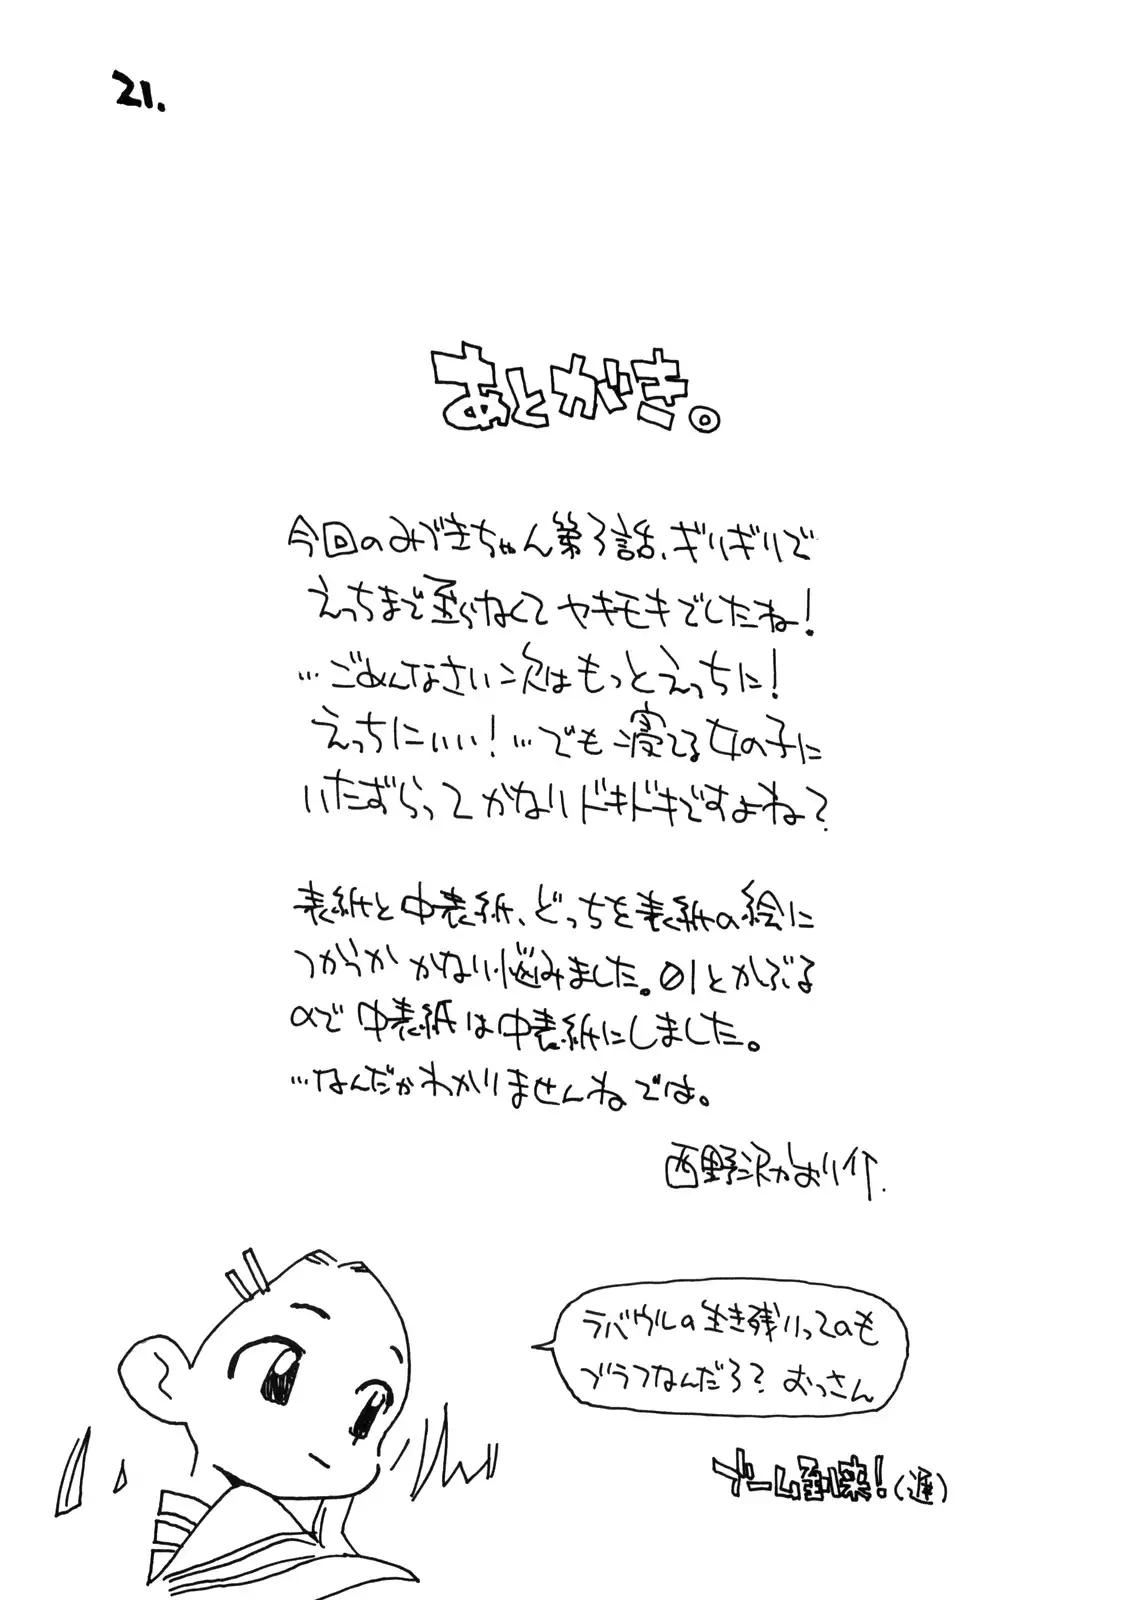 21.
あとがき。
今回のみづきちゃん第3話、ギリギリで
えっちまで至らなくてヤキモキでしたね!
…ごめんなさい次はもっとえっちに!
えっちにいい!…でも寝てる女の子に
いたずらってかなりドキドキですよね?
表紙と中表紙、どっちを表紙の絵に
つかうかかなり悩みました。01とかぶる
ので中表紙は中表紙にしました。
…なんだかわかりませんねでは。
西野
ラバウルの生き残りってのも
ブラフなんだろ?おっさん
ゲーム到来!(遅)